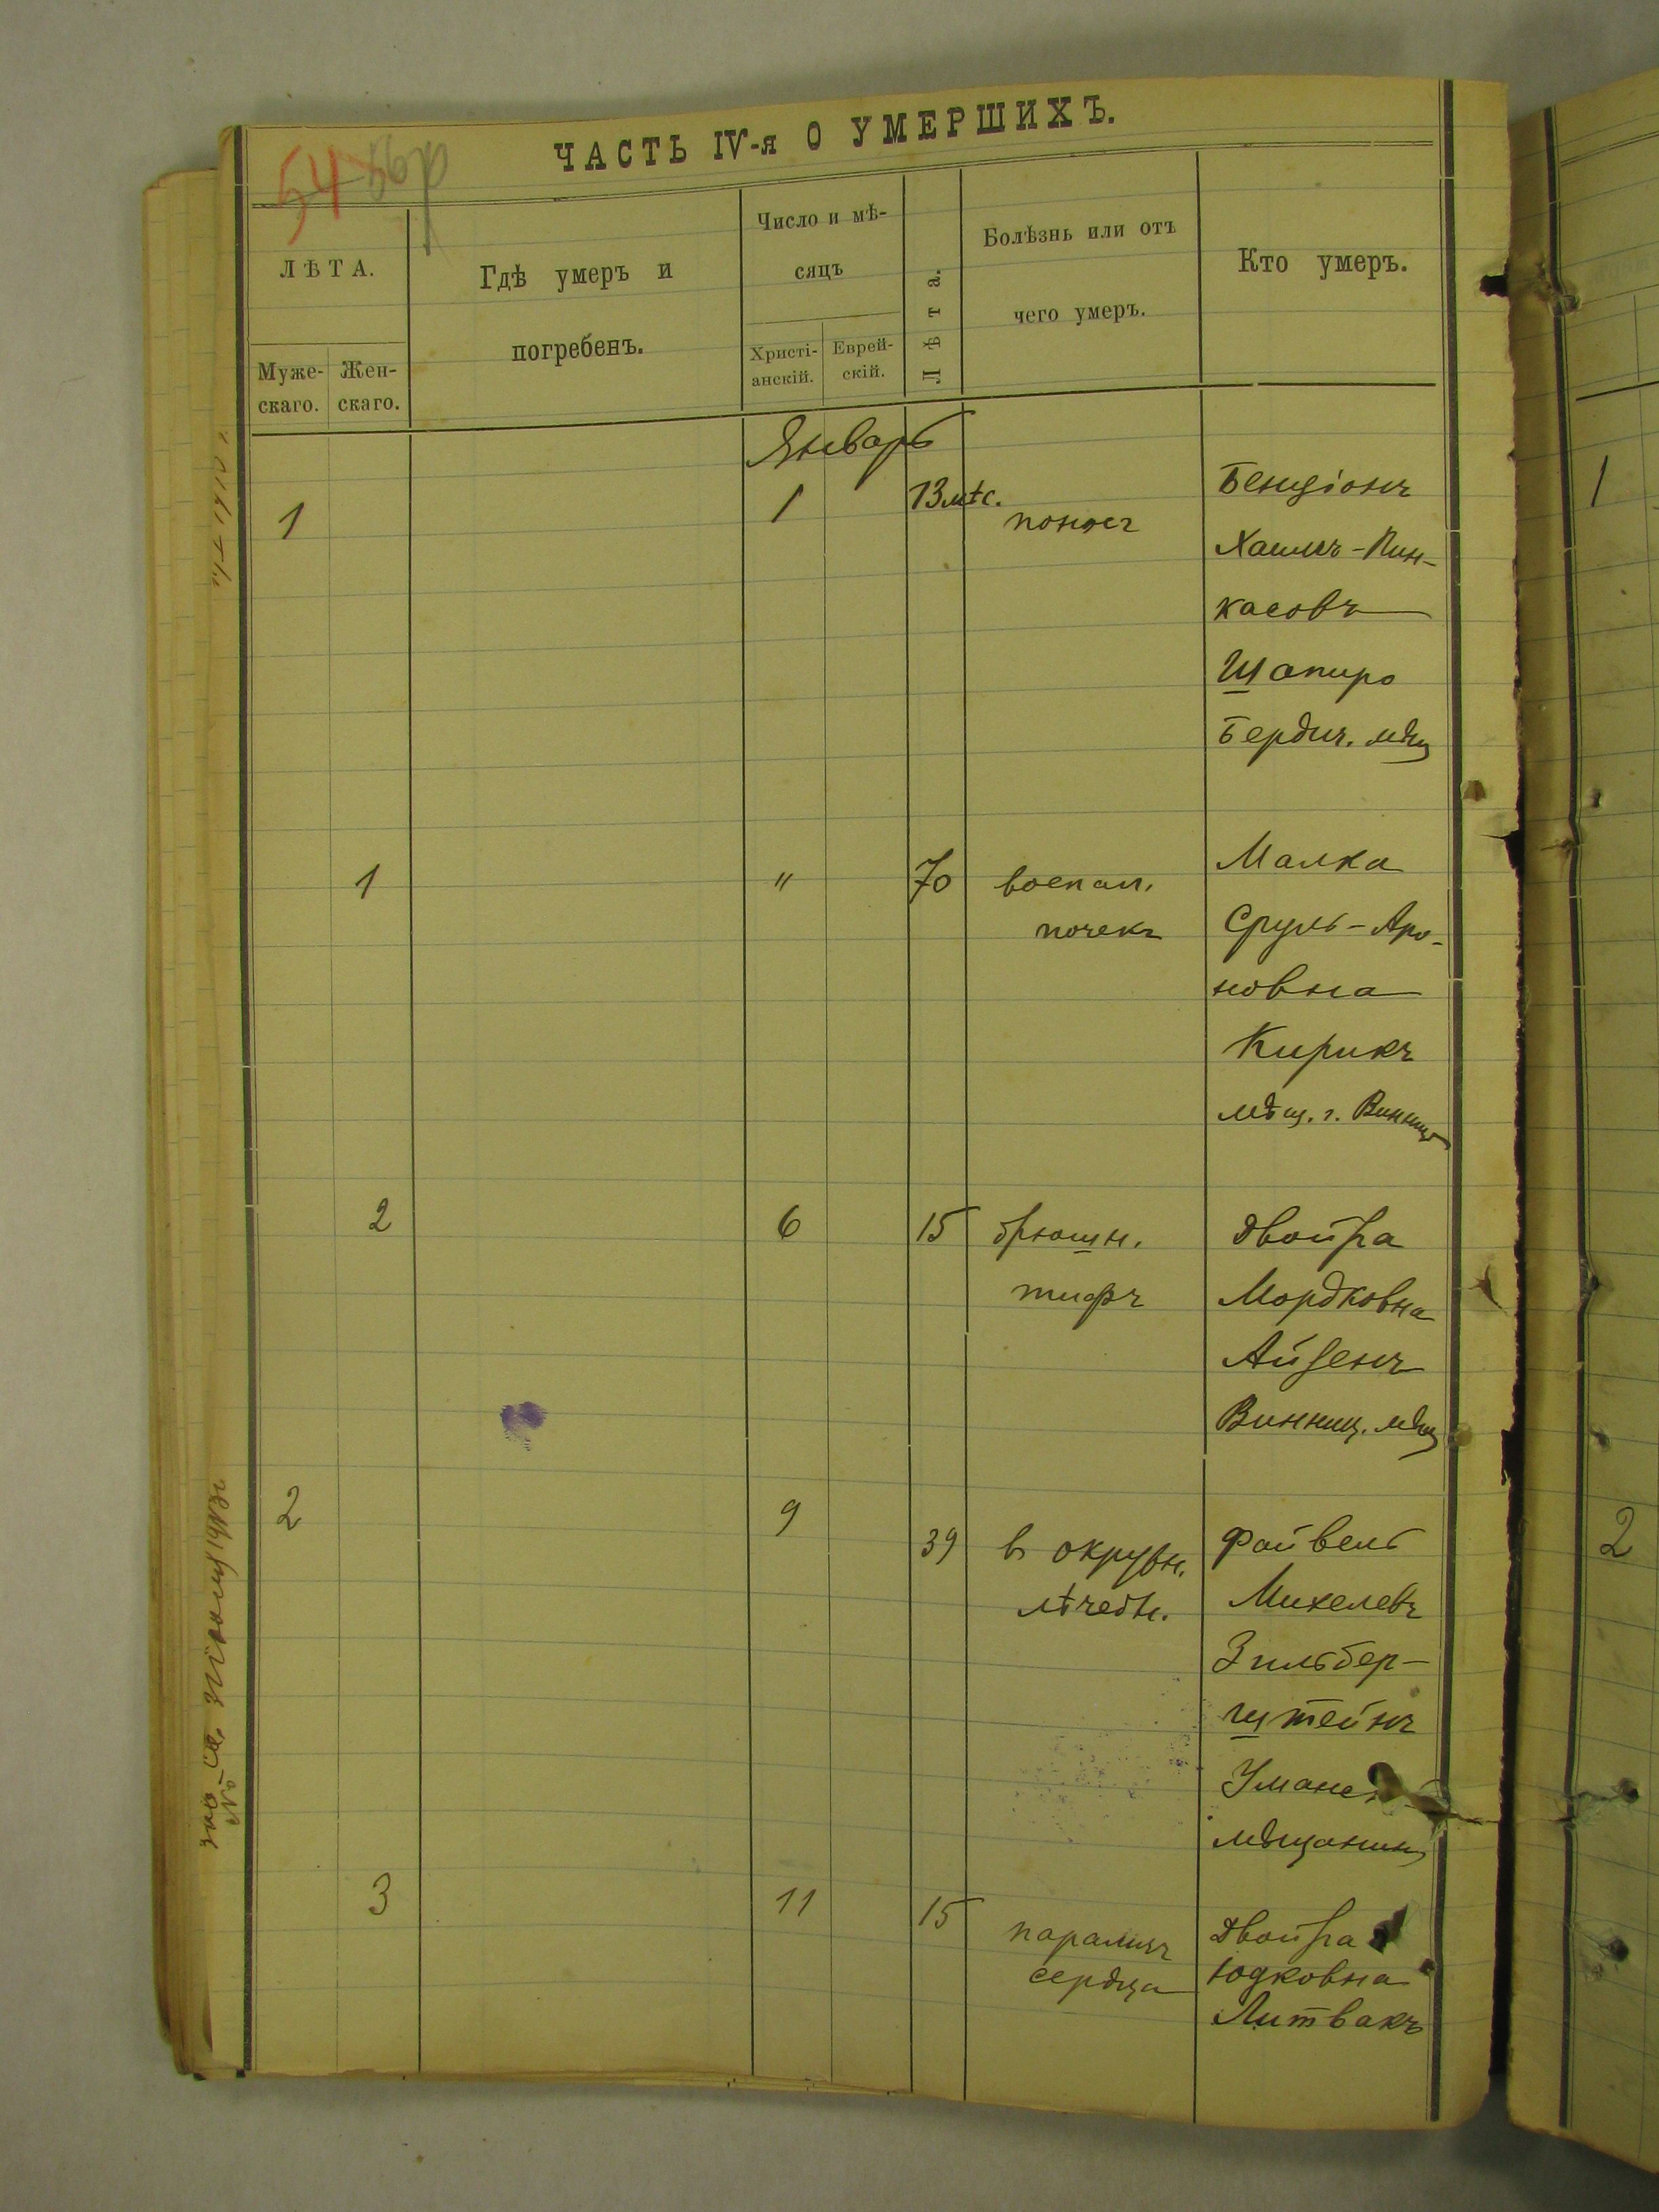 ЧАСТЬ IV-я О УМЕРШИХЪ.
54
ЛѢТА.
Муже-
скаго.
Жен-
скаго.
Гдѣ умеръ и
погребенъ.
Число и мѣ-
сяцъ
Христі-
анскій.
Еврей-
скій.
Лѣта.
Болѣзнь или отъ
чего умеръ.
Кто умеръ.
Январь
1 1 13 мѣс. поносъ Бенціонъ
Хаимъ-Пин-
касовъ
Шапиро
Бердич. мѣщ
1 " 70 воспал. Малка
почекъ Сруль-Аро-
новна
Кирикъ
мѣщ. г. Винницы
2 6 15 брюшн. Двойра
тифъ Мордковна
Айзенъ
Винниц. мѣщ
2 9 39 в окружн. Файвель
лѣчебн. Михелевъ
Зильбер-
штейнъ
Уманс.
мѣщанинъ
3 11 15 параличъ Двойра
сердца Юдковна
Литвакъ
1
2